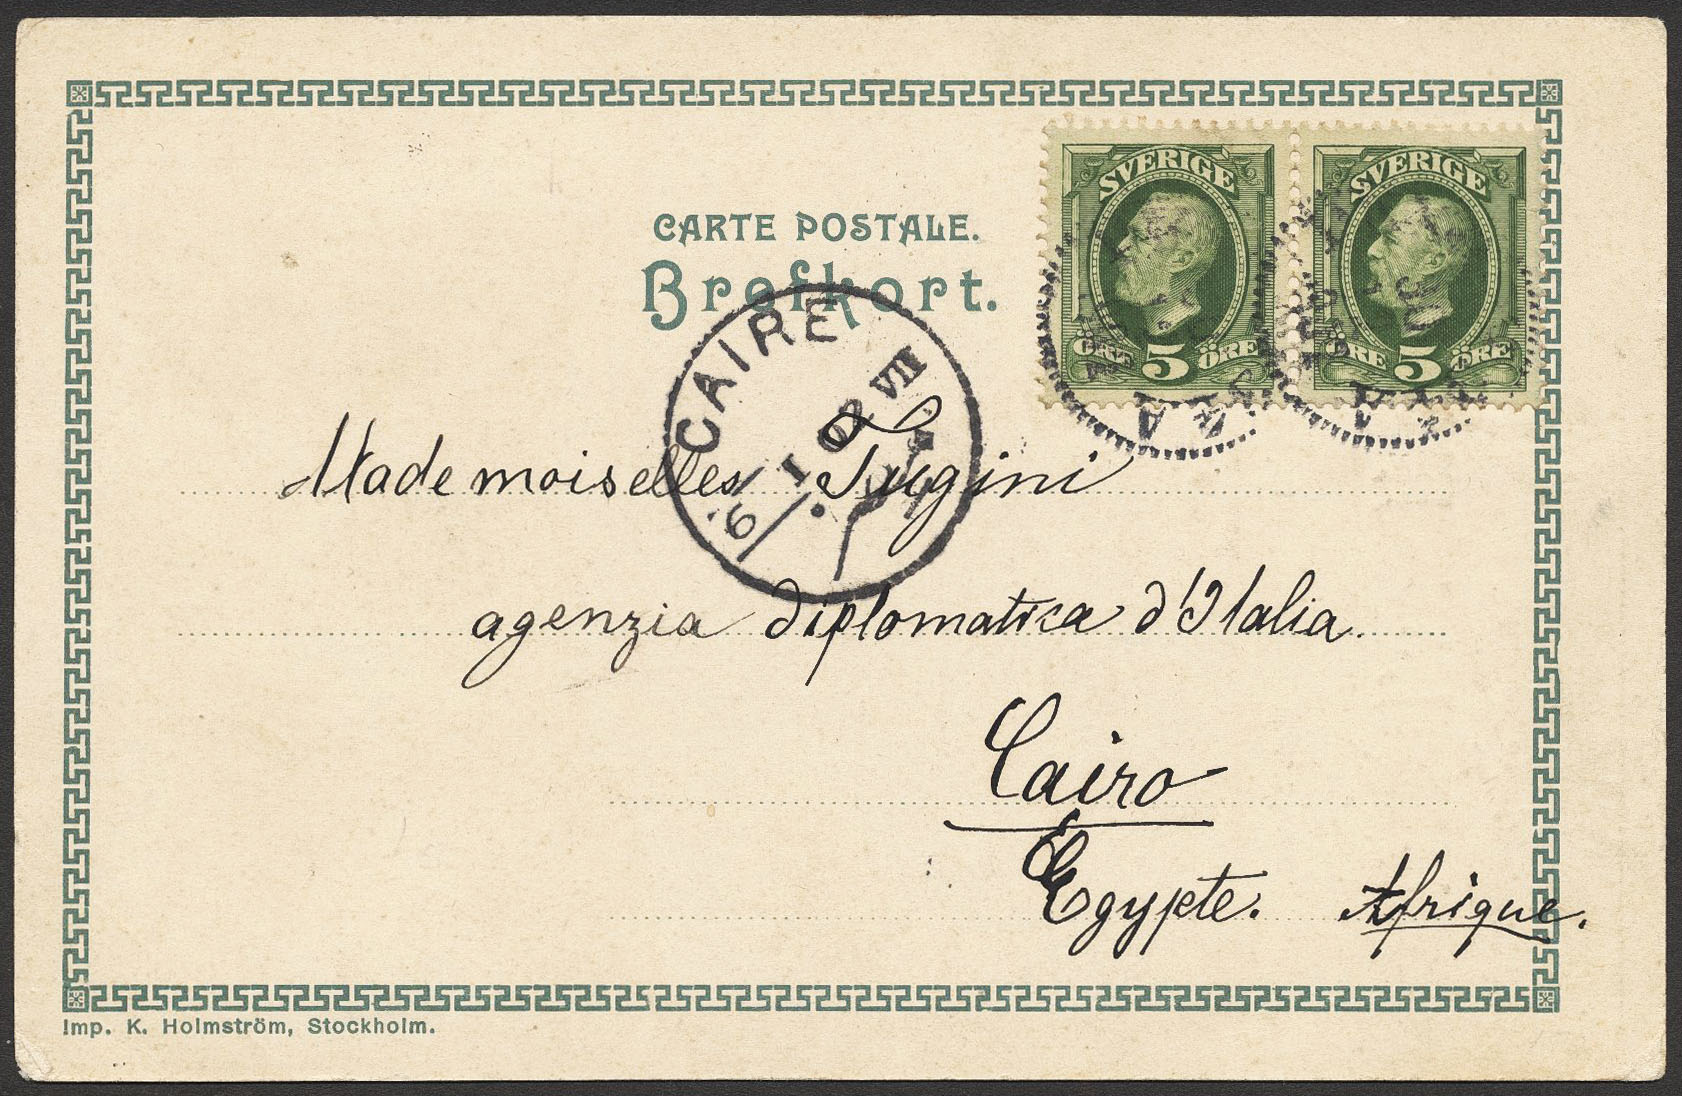 SVERIGE SVERIGE
ÖRE 5 ÖRE ÖRE 5 ÖRE
CARTE POSTALE.
Brefkort.
CAIRE
6 I 02 VII
Mademoiselles Tugini
agenzia diplomatica d'Italia
Cairo
Egypte. Afrique.
Imp. K. Holmström, Stockholm.